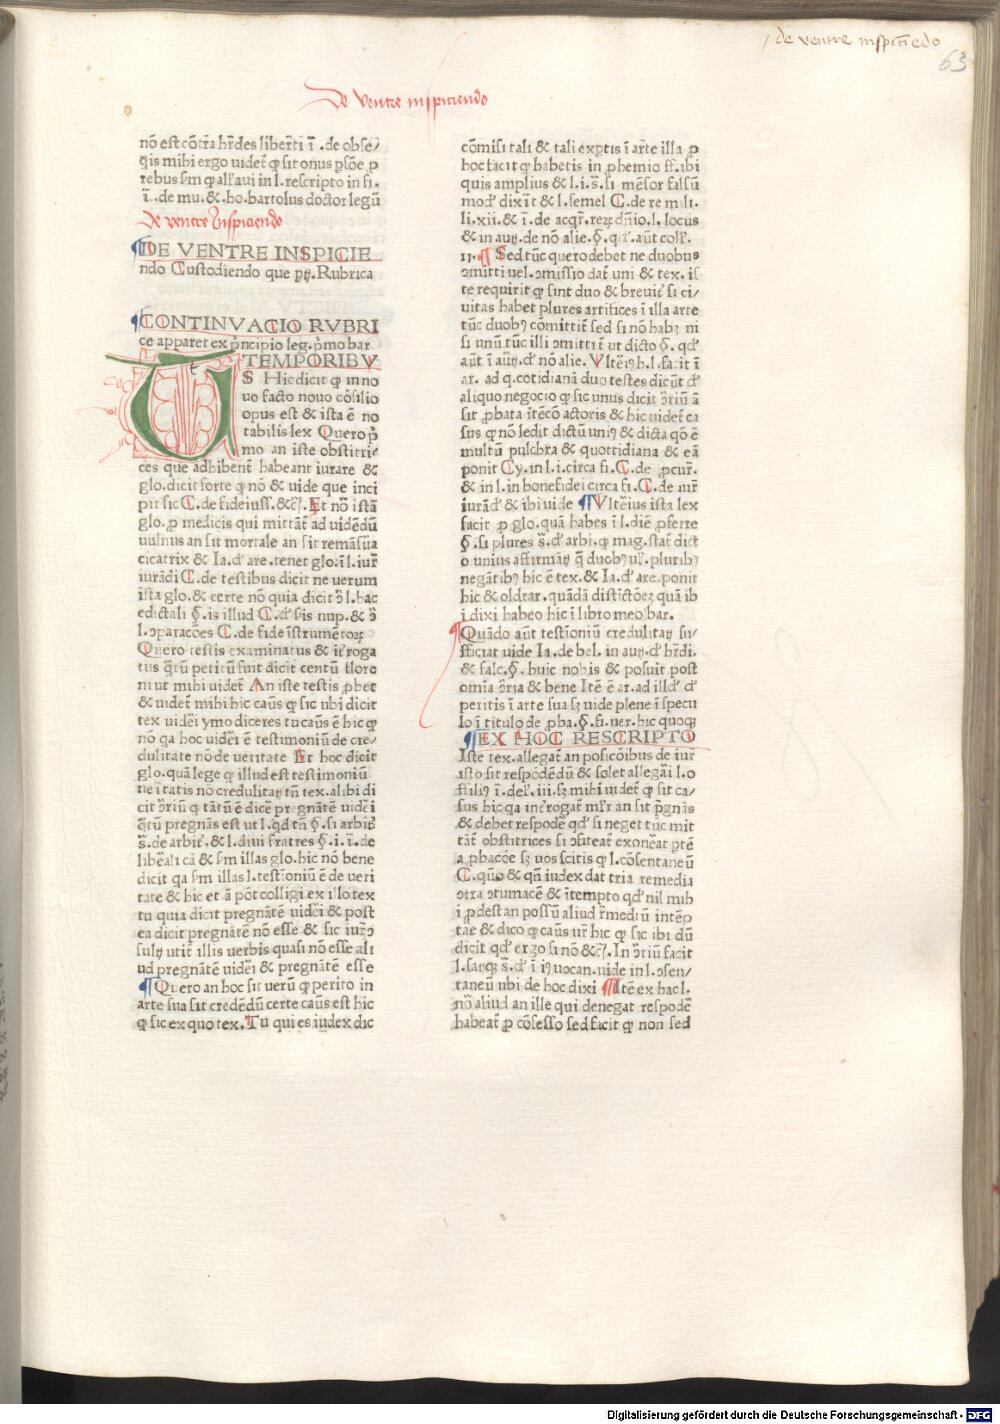 de ventre inspiciēdo
63
De ventre inspiciendo
nō est cōtra hr̄des liberti ī .de obse/
q̄is mihi ergo uidet̄ ꝙ sit onus ꝑsōe ꝓ
rebus s̄m ꝙ alr̄aui in l. rescripto in fi.
ī .de mu. & ho. bartolus doctor legū
De ventre Inspiciendo
DE VENTRE INSPICIE
ndo Custodiendo que ꝑtꝫ. Rubrica
CONTINVACIO RVBRI
ce apparet ex p̄ncipio leg. p̄mo bar
TEMPORIBV
S Hic dicit ꝙ in no
uo facto nouo cōsilio
opus est & ista ē no
tabilis lex Quero p̄
mo an iste obstitri/
ces que adhibent̄ habeant iurare &
glo. dicit forte ꝙ nō & uide que inci
pit sic C. de fideiuss̄. & cꝫ. Et nō istā
glo. ꝓ medicis qui mittāt̄ ad uidēdū
uulnus an sit mortale an sit remāsūa
cicatrix & Ia. d' are. tenet glo. ī l. iur̄
iurādi C. de testibus dicit ne uerum
ista glo. & certe nō quia dicit ɔ̄ l. hac
edictali §. is illud C. d' s̄is nup. & ɔ̄
l. ɔparacoes C. de fide īstrumētoꝝ
Quero testis examinatus & īt̄roga
tus q̄tū petitū fuit dicit centū flore
ni ut mihi uidet̄ An iste testis ꝓbet
& uidet̄ mihi hic caūs ꝙ sic ubi dicit
tex uidēi ymo diceres tu caūs ē hic ꝙ
nō q̄a hoc uidēi ē testimoniū de cre/
dulitate nō de ueritate Et hoc dicit
glo. quā lege ꝙ illud est testimoniū
ue ītatis no credulitatꝫ tn̄ tex. alibi di
cit ɔ̄riū ꝙ tātū ē dicē pregnātē uidēi
q̄tū pregnās est ut l. qd tn̄ §. si arbit̄
s̄. de arbit̄. & l. diui fratres §. i. ī. de
libēali cā & s̄m illas glo. hic nō bene
dicit q̄a s̄m illas l. testīoniū ē de ueri
tate & hic et ā pōt colligi ex illo tex
tu quia dicit pregnātē uidēi & post
ea dicit pregnātē nō esse & sic iurɔ̄
sultꝫ utit̄ illis uerbis quasi nō esse ali
ud pregnātē uidēi & pregnātē esse
Quero an hoc sit uerū ꝙ perito in
arte sua sit credēdū certe caūs est hic
ꝙ sic ex quo tex. Tu qui es iudex dic
cōmisi tali & tali exꝑtis ī arte illa ꝓ
hoc facit ꝙ habetis in ꝓhemio ff. ibi
quis amplius & l. i. s̄. si mēsor falsū
mod' dixīt & l. semel C. de re mili.
li. xii. & ī. de acqr̄. reꝝ dn̄io. l. locus
& in autꝫ. de nō alie. §. qd'. aūt coll'.
Sed tūc quero debet ne duobus
ɔmitti uel. ɔmissio dat̄ uni & tex. is
te requirit ꝙ sint duo & breuit̄ si ci/
uitas habet plures artifices ī illa arte
tūc duobꝫ cōmittit̄ sed si nō habꝫ ni
si unū tūc illi ɔmitti t̄ ut dicto §. qd'
aūt ī autꝫ. d' nō alie. Vltēiꝯ h. l. facit ī
ar. ad q. cotidianā duo testes dicūt d'
aliquo negocio ꝙ sic unus dicit ɔ̄riū ā
sit ꝓbata ītēcō actoris & hic uidet̄ ca
sus ꝙ nō ledit dictū uniꝯ & dicta qō ē
multū pulchra & quottidiana & eā
ponit Cy. in l. i. circa fi. C. de ꝓcur̄.
& in l. in bonefidei circa fi. C. de iur̄
iurād' & ibi uide Vltēius ista lex
facit ꝓ glo. quā habes ī l. diē ꝓferre
§. si plures s̄. d' arbi. ꝙ mag. stat̄ dict
o unius affirmātꝫ q̄ duobꝯ ul'. pluribꝯ
negātibꝯ hic ē tex. & Ia. d' are. ponit
hic & oldrar. quādā distīctōeꝫ quā ib
i dixi habeo hic ī libro meo bar.
Quādo aūt testīoniū credulitatꝫ su/
fficiat uide Ia. de bel. in autꝫ. d' hr̄di.
& falc. §. huic nobis & posuit post
omīa ɔ̄ria & bene Itē ē ar. ad ill d' d'
peritis ī arte sua sꝫ uide plene ī specu
lo ī titulo de ꝓba. §. fi. uer. hic quoqꝫ
EX HOC RESCRIPTO
Iste tex. allegat̄ an posicōibus de iur̄
isto sit respōdēdū & solet allegāi l. o
ffilīꝯ ī. del'. iii. sꝫ mihi uidet̄ ꝙ sit ca/
sus hic q̄a int̄rogat̄ ml'r an sit p̄gnās
& debet respodē̄ qd' si neget tūc mit
tāt̄ obstitrices si ɔfiteat̄ exonēat ꝑtē
a ꝓbacōe sꝫ uos scitis ꝙ l. cōsentaneū
C. quō & qn̄ iudex dat tria remedia
ɔtra ɔtumacē & ītempto qd' nil mih
i ꝓdest an possū aliud r̄mediū intēp
tāe & dico ꝙ caūs ur̄ hic ꝙ sic ibi dū
dicit qd' ergo si nō & cꝫ. In ɔ̄riū facit
l. satqꝫ s̄. d' ī iꝯ uocan. uide in l. ɔsen/
taneū ubi de hoc dixi Itē ex hac l.
nō aliud an ille qui denegat respodē̄
habeat̄ ꝓ cōfesso sed facit ꝙ non sed
Digitalisierung gefördert durch die Deutsche Forschungsgemeinschaft - DFG